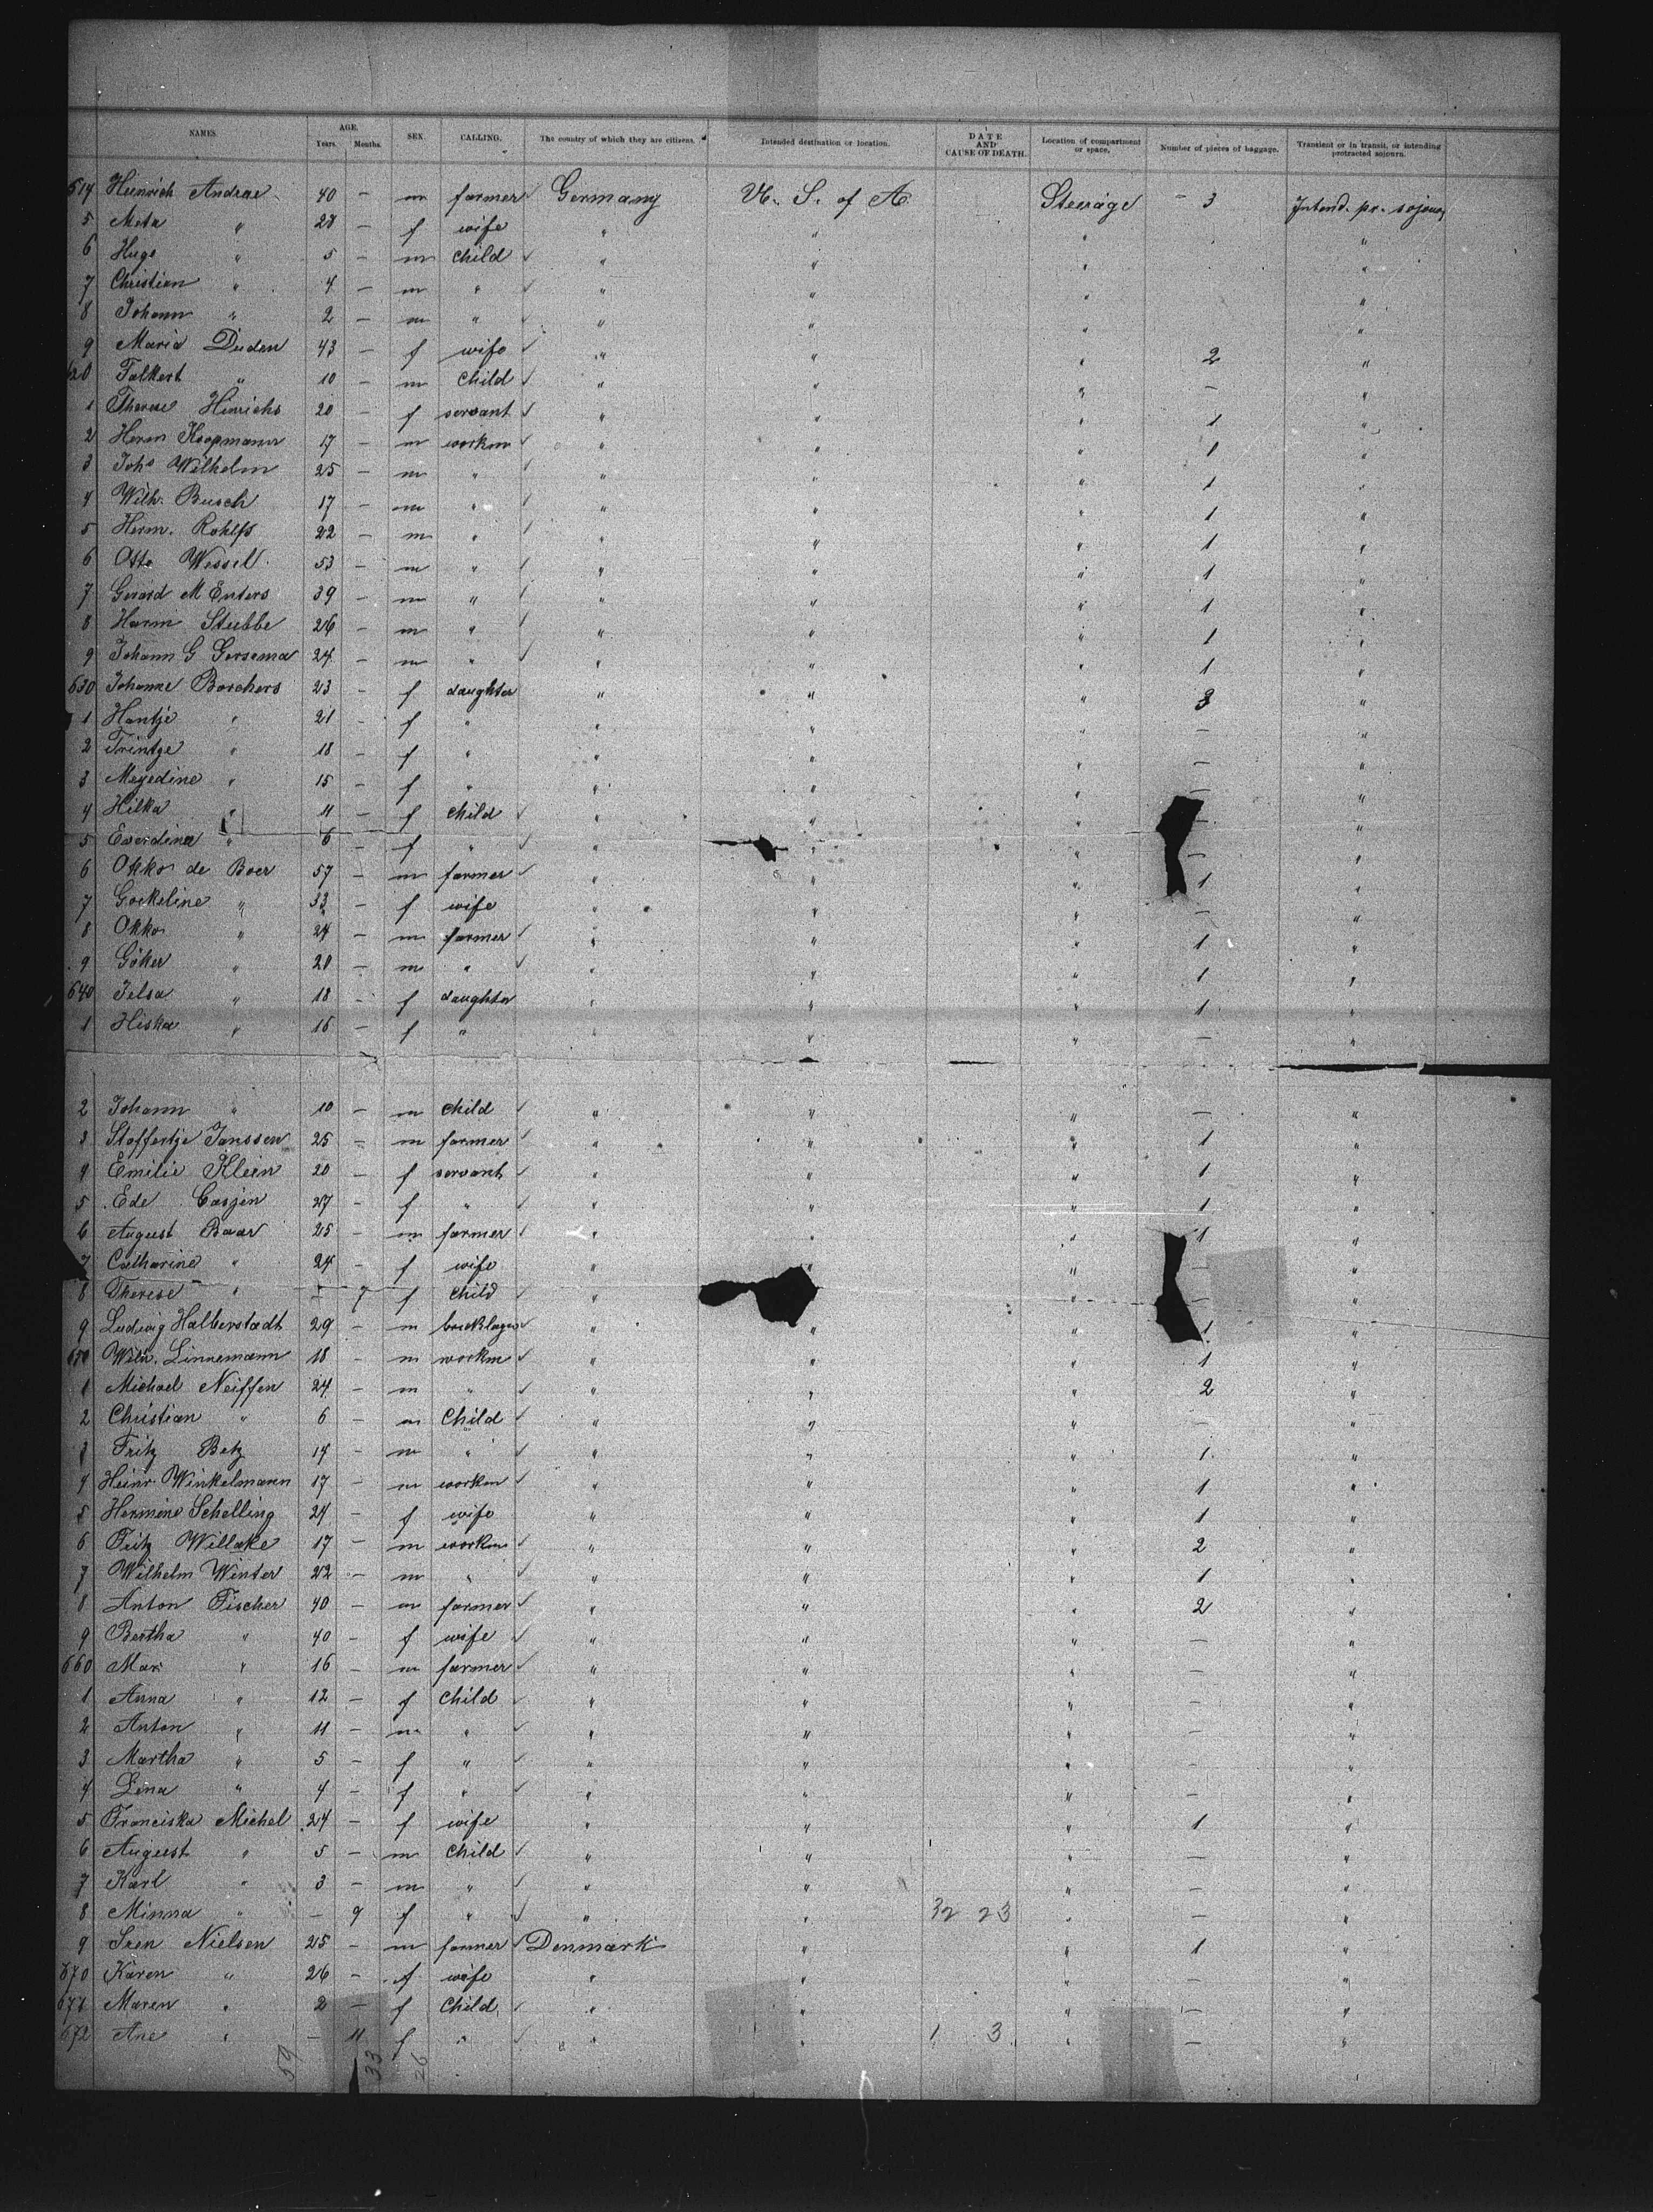 NAMES. AGE. Years. Months. SEX. CALLING. The country of which they are citizens. Intended destination or location. DATE AND CAUSE OF DEATH. Location of compartment or space. Number of pieces of baggage. Transient or in transit, or intending protracted sojourn.
614 Heinrich Andrae 40 — m farmer Germany U. S. of A. Steerage — 3 Intend. pr. sojour
5 Meta " 27 — f wife " " " "
6 Hugo " 5 — m child " " " "
7 Christian " 4 — m " " " " "
8 Johann " 2 — m " " " " "
9 Maria Duden 43 — f wife " " " 2 "
620 Folkert " 10 — m child " " " — "
1 Therese Hinrichs 20 — f servant " " " 1 "
2 Herm Koopmann 17 — m workm " " " 1 "
3 Johs Wilhelm 25 — m " " " " 1 "
4 Wilh. Busch 17 — m " " " " 1 "
5 Herm. Rohlfs 22 — m " " " " 1 "
6 Otto Wessel 53 — m " " " " 1 "
7 Gerard M Enters 39 — m " " " " 1 "
8 Harm Stubbe 26 — m " " " " 1 "
9 Johann G Gersema 24 — m " " " " 1 "
630 Johanne Borchers 23 — f daughter " " " 3 "
1 Hantje " 21 — f " " " " — "
2 Trintje " 18 — f " " " " — "
3 Meyedine " 15 — f " " " " — "
4 Hilka " 11 — f child " " " — "
5 Everdina " 6 — f " " " " — "
6 Okko de Boer 57 — m farmer " " " 1 "
7 Gockeline " 33 — f wife " " " — "
8 Okko " 24 — m farmer " " " 1 "
9 Göker " 20 — m " " " " 1 "
640 Jelsa " 18 — f daughter " " " 1 "
1 Hiska " 15 — f " " " " — "
2 Johann " 10 — m child " " " — "
3 Stoffertje Janssen 25 — m farmer " " " 1 "
4 Emilie Klein 20 — f servant " " " 1 "
5 Ede Casjen 27 — f " " " " 1 "
6 August Baar 25 — m farmer " " " 1 "
7 Catharine " 24 — f wife " " " — "
8 Therese " — 7 f child " " — "
9 Ludwig Halberstadt 29 — m bricklayer " " " 1 "
650 Wilh. Linnemann 18 — m workm " " " 1 "
1 Michael Neiffen 24 — m " " " " 2 "
2 Christian " 6 — m Child " " " — "
3 Fritz Betz 14 — m " " " " 1 "
4 Heinr Winkelmann 17 — m workm " " " 1 "
5 Hermine Schelling 24 — f wife " " " 1 "
6 Fritz Willake 17 — m workm " " " 2 "
7 Wilhelm Winter 22 — m " " " " 1 "
8 Anton Fischer 40 — m farmer " " " 2 "
9 Bertha " 40 — f wife " " " — "
660 Max " 16 — m farmer " " " — "
1 Anna " 12 — f Child " " " — "
2 Anton " 11 — m " " " " — "
3 Martha " 5 — f " " " " — "
4 Lena " 4 — f " " " " — "
5 Franciska Michel 24 — f wife " " " 1 "
6 August " 5 — m Child " " " — "
7 Karl " 3 — m " " " " — "
8 Minna " — 9 f " " " 32 23 " — "
9 Sren Nielsen 25 — m farmer Denmark " " 1 "
670 Karen " 26 — f wife " " " — "
671 Maren " 2 — f Child " " " — "
672 Ane " — 11 f " " " 1 3 " — "
59 33 26